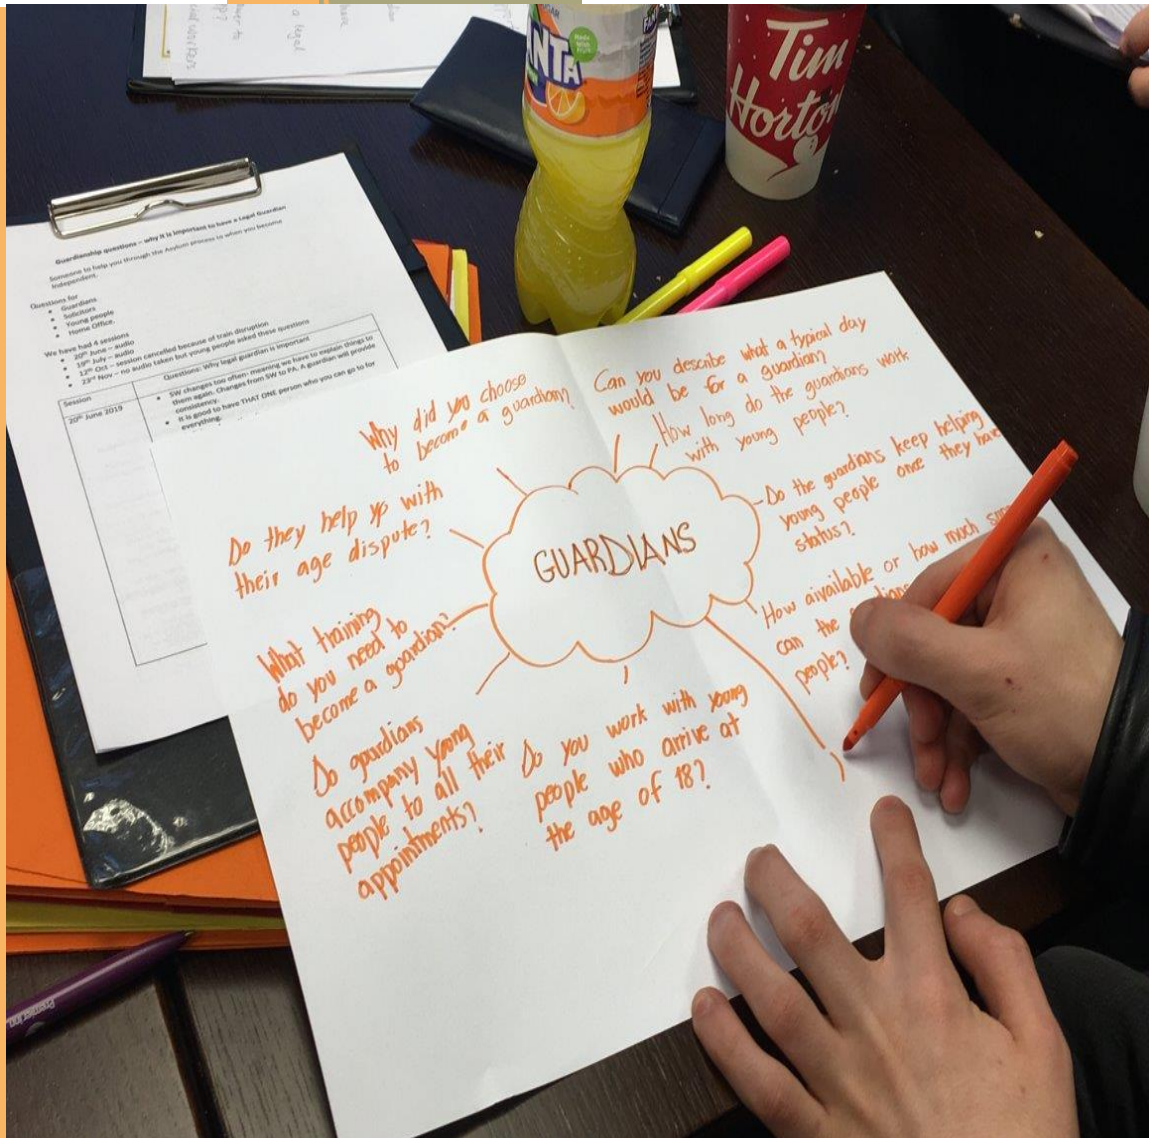 SUGAR
FANTA
Made
With
Tim
Horton
Guardianship questions – why it is important to have a Legal Guardian
Someone to help you through the Asylum process to when you become
Independent.
Questions for
Guardians
Solicitors
Young people
Home Office.
We have had 4 sessions
20th June – audio
19th July – audio
12th Oct – session cancelled because of train disruption
23rd Nov – no audio taken but young people asked these questions
Session
Questions: Why legal guardian is important
20th June 2019
SW changes too often- meaning we have to explain things to
them again. Changes from SW to PA. A guardian will provide
consistency.
It is good to have THAT ONE person who you can go to for
everything.
GUARDIANS
Why did you choose
to become a guardian?
Can you describe what a typical day
would be for a guardian?
How long do the guardians work
with young people?
Do the guardians keep helping
young people once they have
status?
How aivailable or how much
can the
people?
Do you work with young
people who arrive at
the age of 18?
Do guardians
accompany young
people to all their
appointments?
What training
do you need to
become a guardian?
Do they help yp with
their age dispute?
Premier Inn